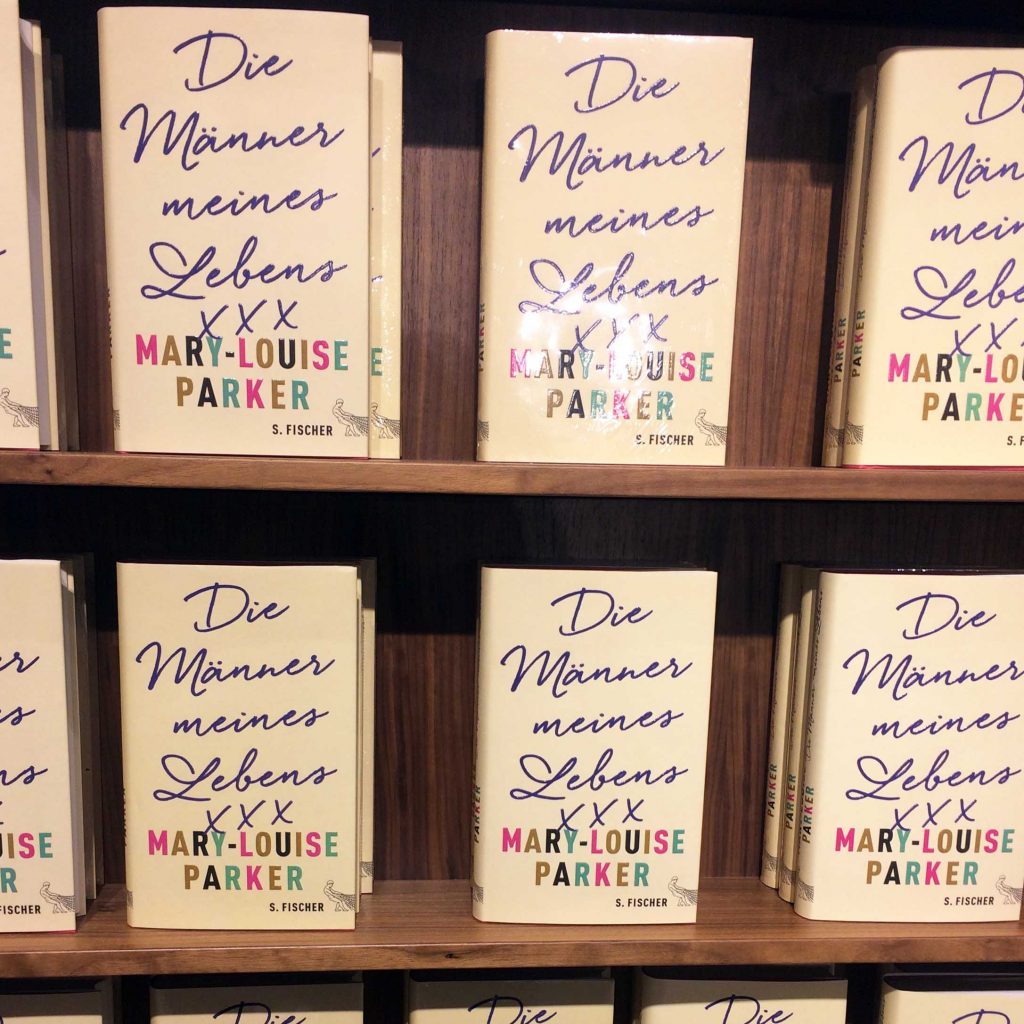 Die
Männer
meines
Lebens
xxx
MARY-LOUISE
PARKER
S. FISCHER
Die
Männer
meines
Lebens
xxx
MARY-LOUISE
PARKER
S. FISCHER
PARKER
PARKER
xxx
Die
Männer
meines
Lebens
xxx
MARY-LOUISE
PARKER
S. FISCHER
FISCHER
PARKER
Die
Männer
meines
Lebens
xxx
MARY-LOUISE
PARKER
S. FISCHER
PARKER
PARKER
PARKER
Die
Männer
meines
Lebens
xxx
MARY-LOUISE
PARKER
S. FISCHER
Die
Die
Die